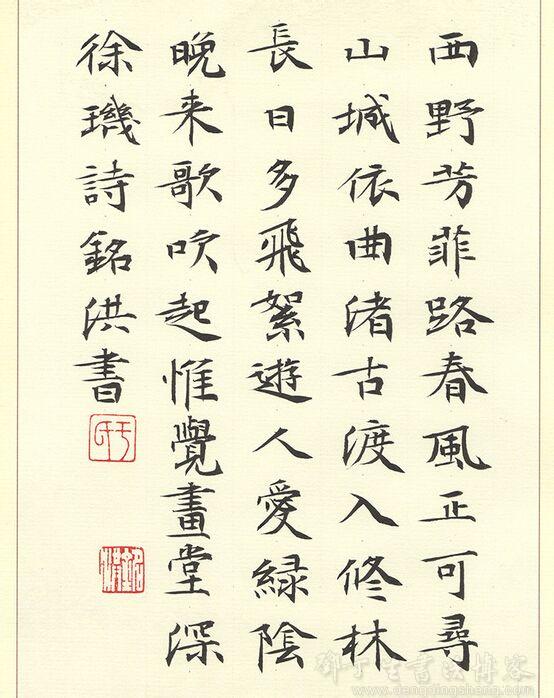 西野芳菲路春風正可尋
山城依曲渚古渡入修林
長日多飛絮遊人愛緑陰
晚来歌吹起惟覺畫堂深
徐璣詩銘洪書
邓丁生書法博客
www.dengdingsheng.com